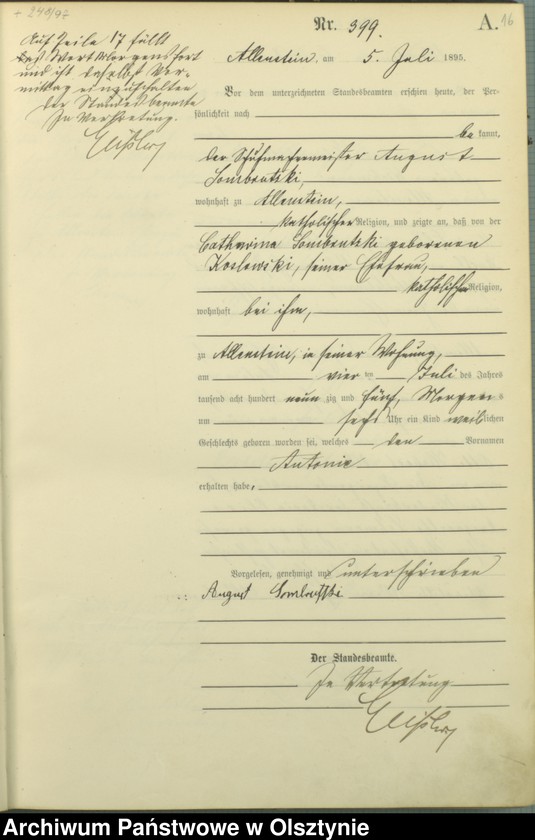 + 248/97
Nr. 399.
A. 16
Auf Zeile 17 fällt
das Wort Morgens fort
und ist daselbst Vor-
mittag einzuschalten
Der Standesbeamte
In Vertretung.
Allenstein, am 5. Juli 1895.
Vor dem unterzeichneten Standesbeamten erschien heute, der Per-
sönlichkeit nach
be kannt,
der Schuhmachermeister August
wohnhaft zu Allenstein,
katholischer Religion, und zeigte an, daß von der
Catharina geborenen
Koslowski, seiner Ehefrau,
katholischer Religion,
wohnhaft bei ihm,
zu Allenstein, in seiner Wohnung,
am vier ten Juli des Jahres
tausend acht hundert neun zig und fünf, Morgens
um sechs Uhr ein Kind weiblichen
Geschlechts geboren worden sei, welches den Vornamen
Antonie
erhalten habe.
Vorgelesen, genehmigt und unterschrieben
August
Der Standesbeamte.
In Vertretung
Archiwum Państwowe w Olsztynie